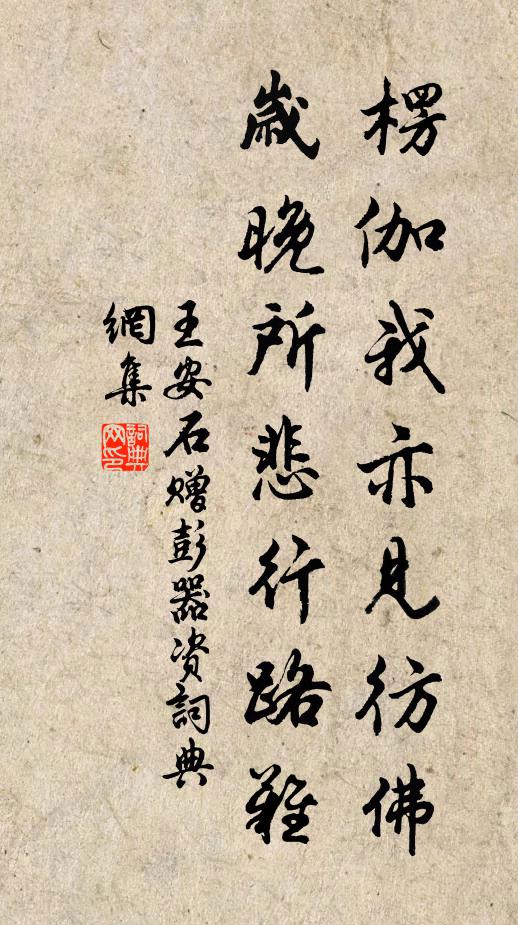 楞伽我亦見彷佛
歲晚所悲行路難
王安石赠彭器资詞典
網集
詞典网印